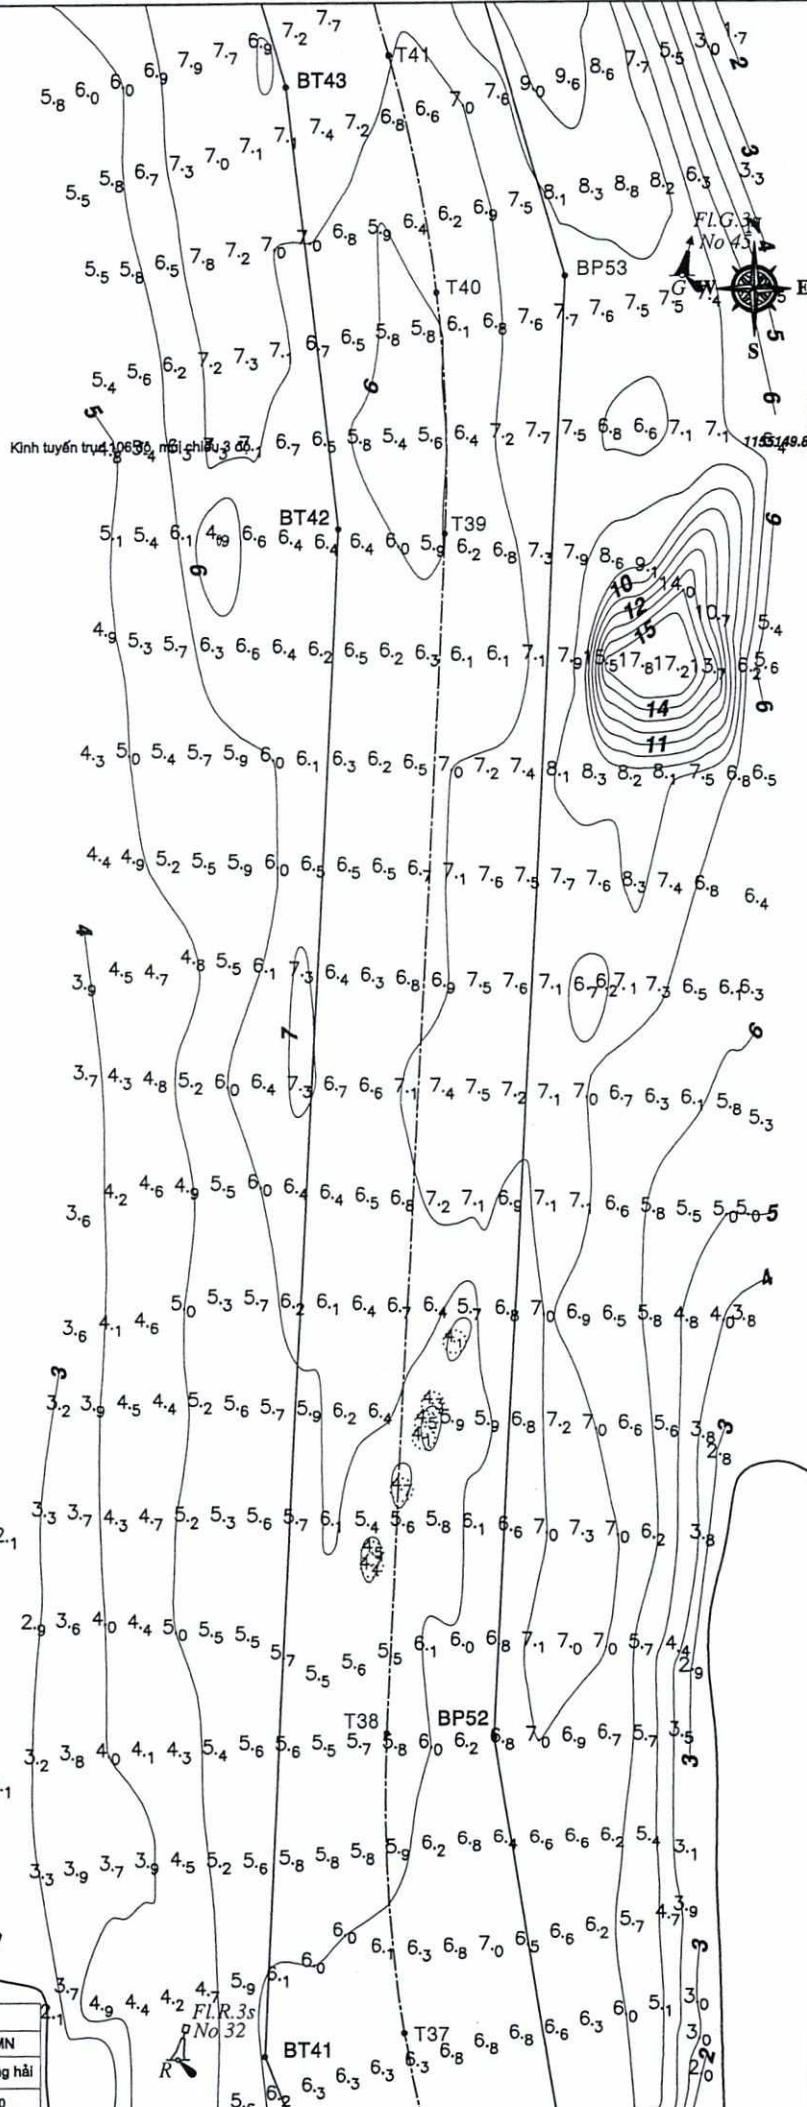 7.2 7.7
5.8 6.0 6.0 6.9 7.9 7.7 6.9
T41
BT43
7.0 7.6 9.0 9.6 8.6 7.7 5.5 3.0 1.7
2
5.5 5.8 6.7 7.3 7.0 7.1 7.1 7.4 7.2 6.8 6.6
3
7.5 8.1 8.3 8.8 8.2 6.3 3.3
Fl.G.3s
No 45
4
G
W E
S
5.5 5.8 6.5 7.8 7.2 7.0 7.0 6.8 5.9 6.4 6.2 6.9
BP53
T40
5
5.4 5.6 6.2 7.2 7.3 7.1 6.7 6.5 5.8 5.8 6.1 6.8 7.6 7.7 7.6 7.5 7.5 7.4
6
6
5
Kinh tuyến trục 106 độ, múi chiếu 3 độ.
6.7 6.5 5.8 5.4 5.6 6.4 7.2 7.7 7.5 6.8 6.6 7.1 7.1
1155149.8
BT42
T39
9
5.1 5.4 6.1 4.9 6.6 6.4 6.4 6.4 6.0 5.9 6.2 6.8 7.3 7.9 8.6 9.1
6
10 14.0
12 10.7
15 5.4
4.9 5.3 5.7 6.3 6.6 6.4 6.2 6.5 6.2 6.3 6.1 6.1 7.1 7.9 15.5 17.8 17.2 13.7 6.2 5.6
14 6
11
4.3 5.0 5.4 5.7 5.9 6.0 6.1 6.3 6.2 6.5 7.0 7.2 7.4 8.1 8.3 8.2 8.1 7.5 6.8 6.5
4.4 4.9 5.2 5.5 5.9 6.0 6.5 6.5 6.5 6.7 7.1 7.6 7.5 7.7 7.6 8.3 7.4 6.8 6.4
4
3.9 4.5 4.7 4.8 5.5 6.1 7.3 6.4 6.3 6.8 6.9 7.5 7.6 7.1 6.7 6.2 7.1 7.3 6.5 6.1 6.3
7
6
3.7 4.3 4.8 5.2 6.0 6.4 7.3 6.7 6.6 7.1 7.4 7.5 7.2 7.1 7.0 6.7 6.3 6.1 5.8 5.3
3.6 4.2 4.6 4.9 5.5 6.0 6.4 6.4 6.5 6.8 7.2 7.1 6.9 7.1 7.1 6.6 5.8 5.5 5.0 5.0 5
4
3.6 4.1 4.6 5.0 5.3 5.7 6.2 6.1 6.4 6.7 6.4 5.7 6.8 7.0 6.9 6.5 5.8 4.8 4.0 3.8
4.1
3
3.2 3.9 4.5 4.4 5.2 5.6 5.7 5.9 6.2 6.4 5.9 5.9 6.8 7.2 7.0 6.6 5.6 3.8 3
2.8
4.7
2.1
3.3 3.7 4.3 4.7 5.2 5.3 5.6 5.7 6.1 5.4 5.6 5.8 6.1 6.6 7.0 7.3 7.0 6.2 3.8
2.9 3.6 4.0 4.4 5.0 5.5 5.5 5.7 5.5 5.6 5.5 6.1 6.0 6.8 7.1 7.0 7.0 5.7 4.4 2.9
T38 BP52
3.2 3.8 4.0 4.1 4.3 5.4 5.6 5.6 5.5 5.7 5.8 6.0 6.2 6.8 7.0 6.9 6.7 5.7 3.5
3
3.3 3.9 3.7 3.9 4.5 5.2 5.6 5.8 5.8 5.8 5.9 6.2 6.8 6.4 6.6 6.6 6.2 5.4 3.1
3.7 4.9 4.4 4.2 4.7 5.9 6.1 6.0 6.0 6.1 6.3 6.8 7.0 6.5 6.6 6.2 5.7 4.7 3.9
3
2.1
Fl.R.3s
No 32
R
T37
BT41
6.2 6.3 6.3 6.3 6.3 6.8 6.8 6.8 6.6 6.3 6.0 5.1 3.0
3.0
2
2.0
MN
g hải